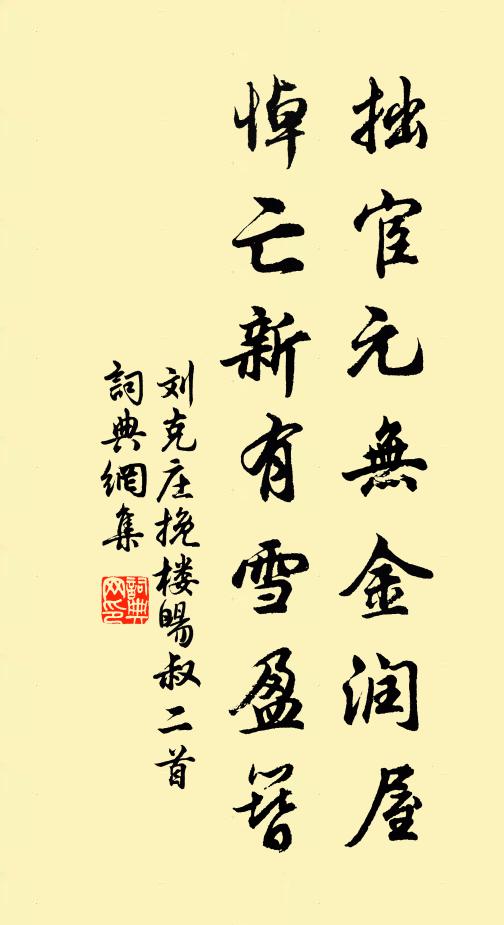 拙宦元無金润屋
悼亡新有雪盈簪
刘克庄挽楼暘叔二首
詞典網集
詞典网印